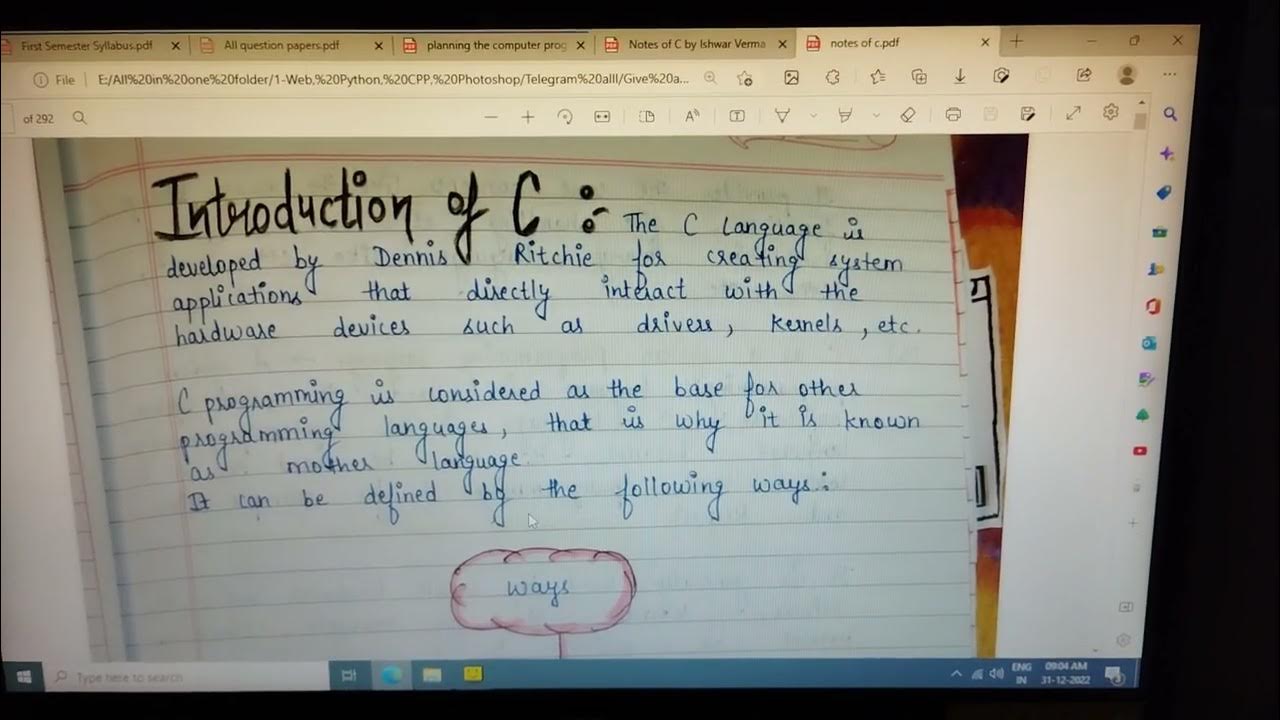 First Semester Syllabus.pdf
All question papers.pdf
planning the computer prog
Notes of C by Ishwar Verma
notes of c.pdf
File
E:/All%20in%20one%20folder/1-Web,%20Python,%20CPP,%20Photoshop/Telegram%20alll/Give%20a...
of 292
Introduction of C :- The C Language is
developed by Dennis Ritchie for creating system
applications that directly interact with the
hardware devices such as drivers, kernels, etc.
C programming is considered as the base for other
programming languages, that is why it is known
as mother language.
It can be defined by the following ways:
ways
Type here to search
ENG
IN
09:04 AM
31-12-2022